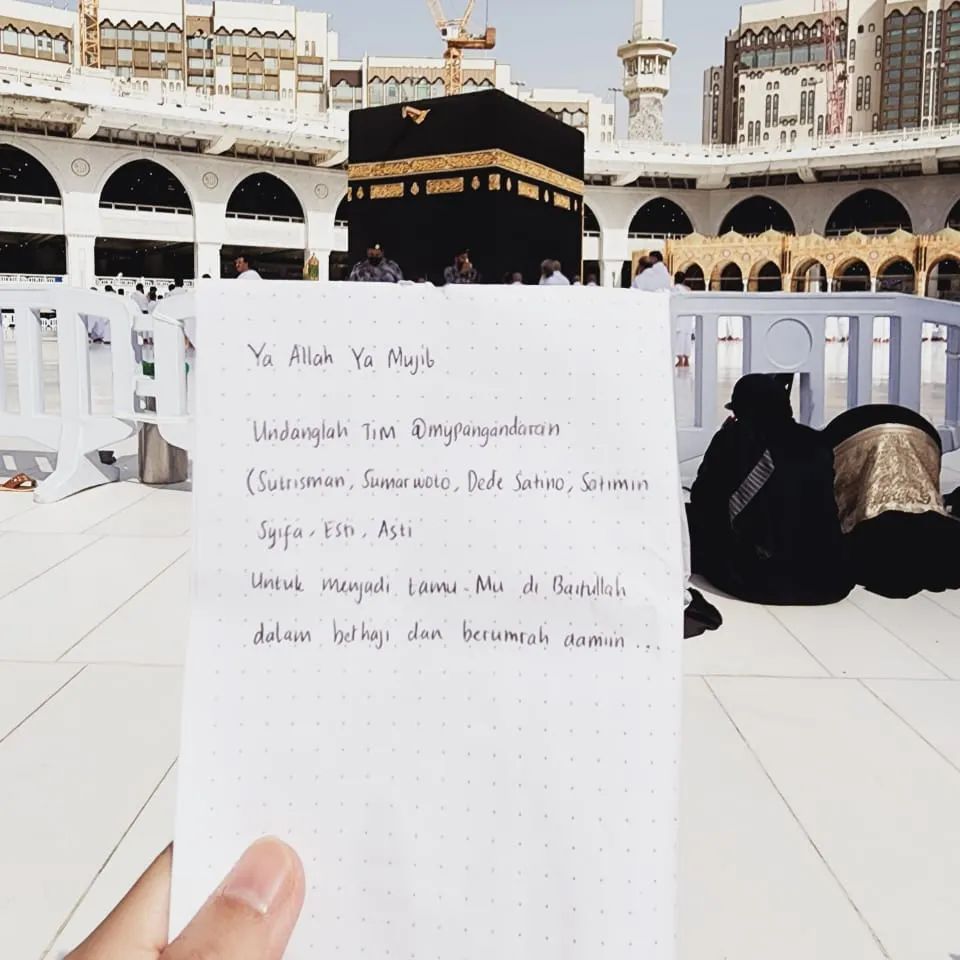 Ya Allah Ya Mujib
Undanglah Tim @mypangandaran
(Sutrisman, Sumarwoto, Dede Satino, Satimin
Syifa, Esti, Asti
Untuk menjadi tamu-Mu di Baitullah
dalam berhaji dan berumrah aamiin ...